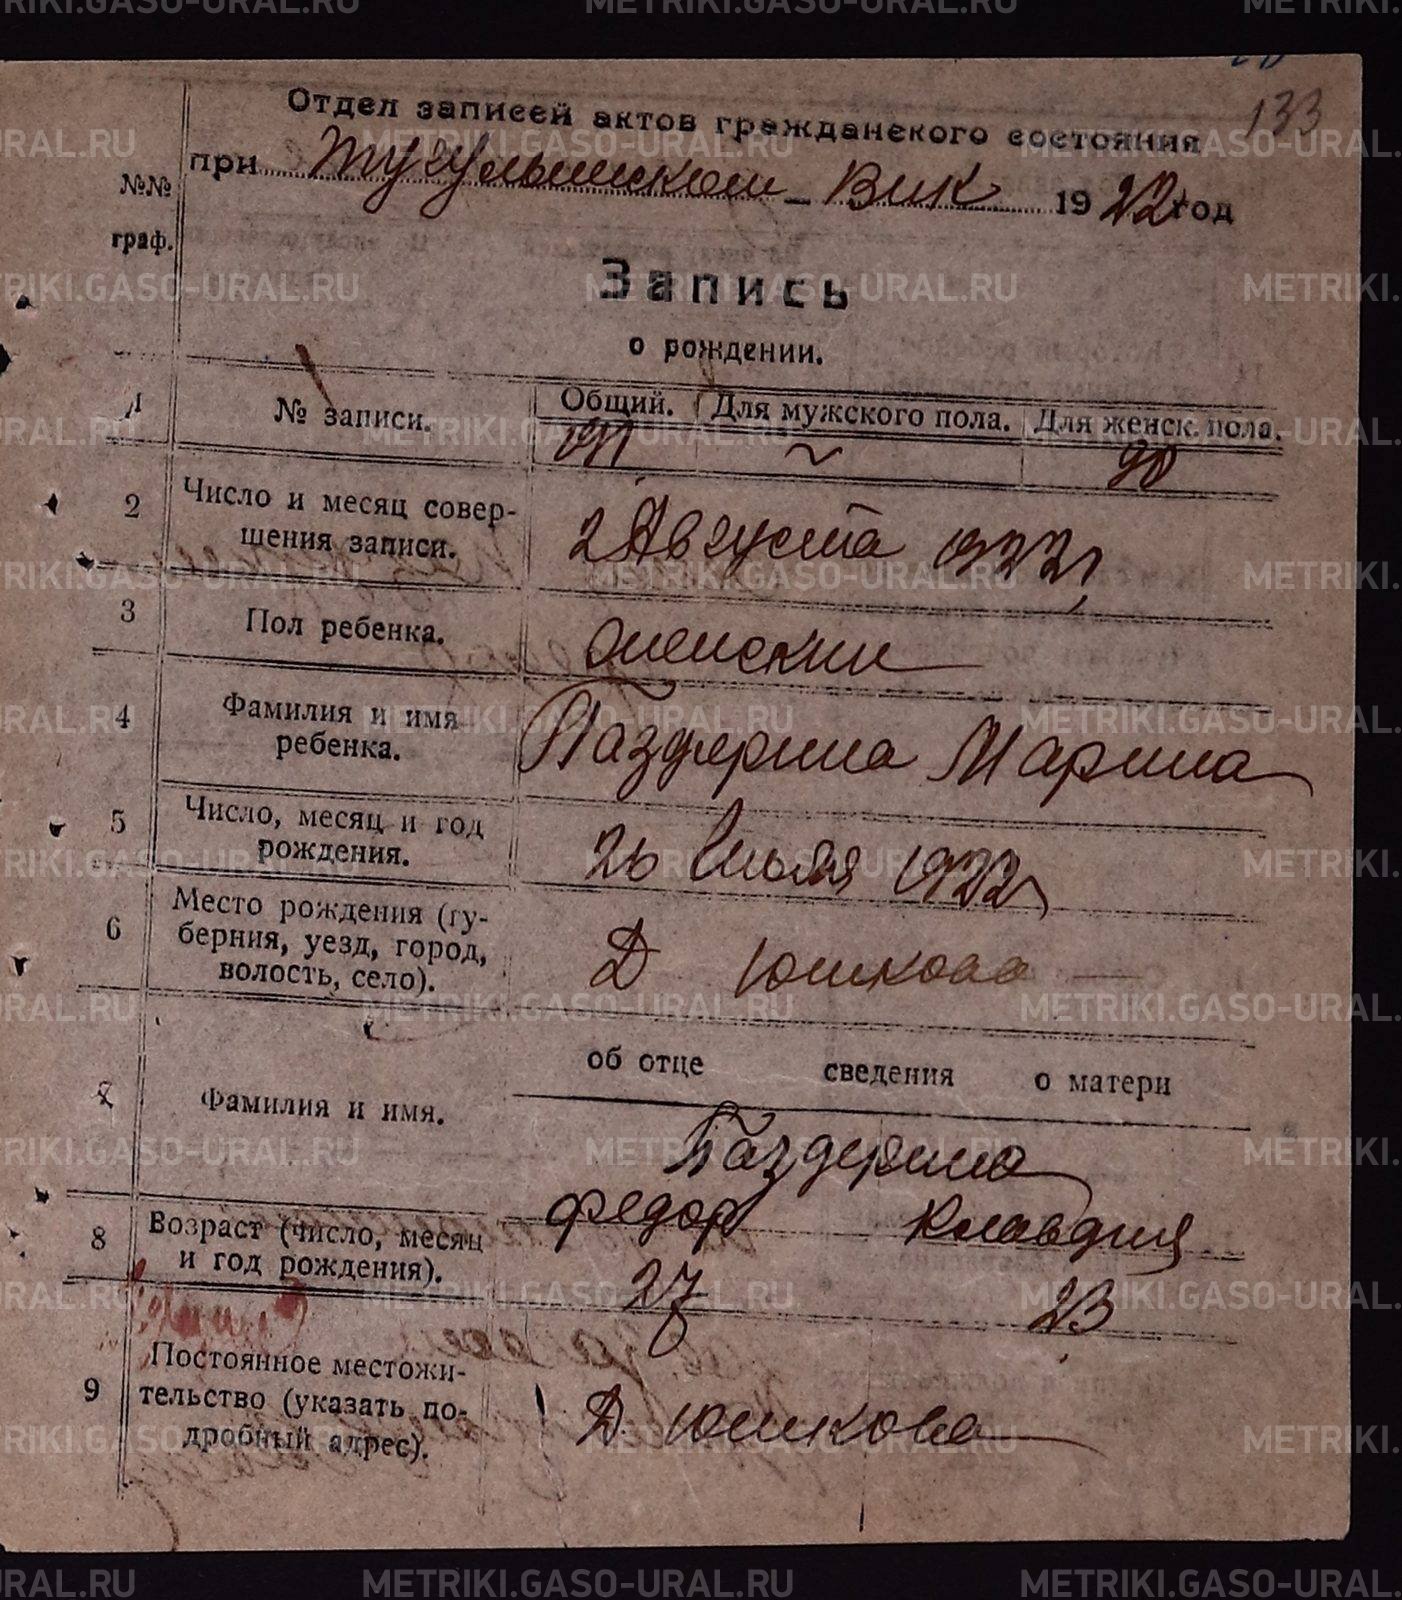 133
Отдел записей актов гражданского состояния
при Тугулымском - Вик 1922 год
№№ граф.
Запись
о рождении.
1 № записи. Общий. Для мужского пола. Для женск. пола.
191 ~ 90
2 Число и месяц совер-
шения записи. 2 Августа 1922 г
3 Пол ребенка. женский
4 Фамилия и имя
ребенка. Паздерина Марина
5 Число, месяц и год
рождения. 26 Июля 1922 г
6 Место рождения (гу-
берния, уезд, город,
волость, село). Д Юшкова
об отце сведения о матери
7 Фамилия и имя. Паздерина
Федор Клавдия
8 Возраст (число, месяц
и год рождения). 27 23
9 Постоянное местожи-
тельство (указать по-
дробный адрес). Д. Юшкова
METRIKI.GASO-URAL.RU